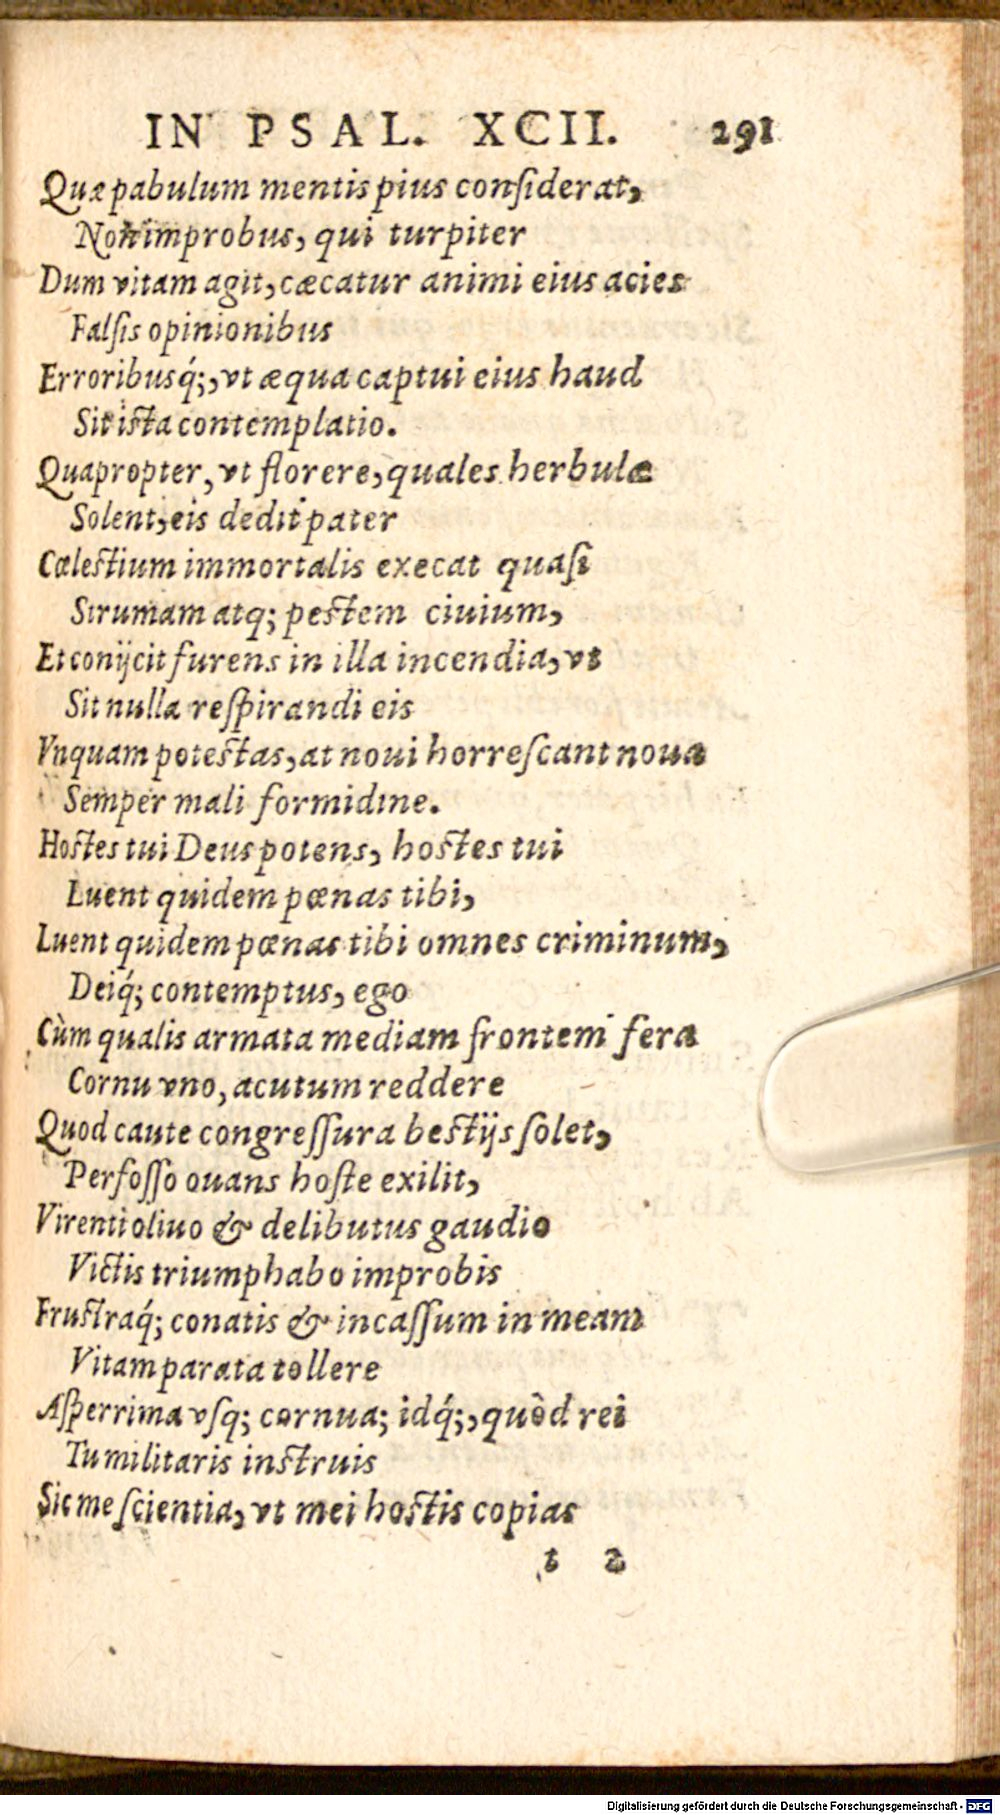 IN PSAL. XCII. 291
Quæ pabulum mentis pius considerat,
Non improbus, qui turpiter
Dum vitam agit, cæcatur animi eius acies
Falsis opinionibus
Erroribusq́;, vt æqua captui eius haud
Sit ista contemplatio.
Quapropter, vt florere, quales herbulæ
Solent, eis dedit pater
Cœlestium immortalis execat quasi
Strumam atq; pestem ciuium,
Et conijcit furens in illa incendia, vt
Sit nulla respirandi eis
Vnquam potestas, at noui horrescant noua
Semper mali formidine.
Hostes tui Deus potens, hostes tui
Luent quidem pœnas tibi,
Luent quidem pœnas tibi omnes criminum,
Deiq́; contemptus, ego
Cùm qualis armata mediam frontem fera
Cornu vno, acutum reddere
Quod caute congressura bestijs solet,
Perfosso ouans hoste exilit,
Virenti oliuo & delibutus gaudio
Victis triumphabo improbis
Frustraq́; conatis & incassum in meam
Vitam parata tollere
Asperrima vsq; cornua; idq́;, quòd rei
Tu militaris instruis
Sic me scientia, vt mei hostis copias
t 2
Digitalisierung gefördert durch die Deutsche Forschungsgemeinschaft - DFG